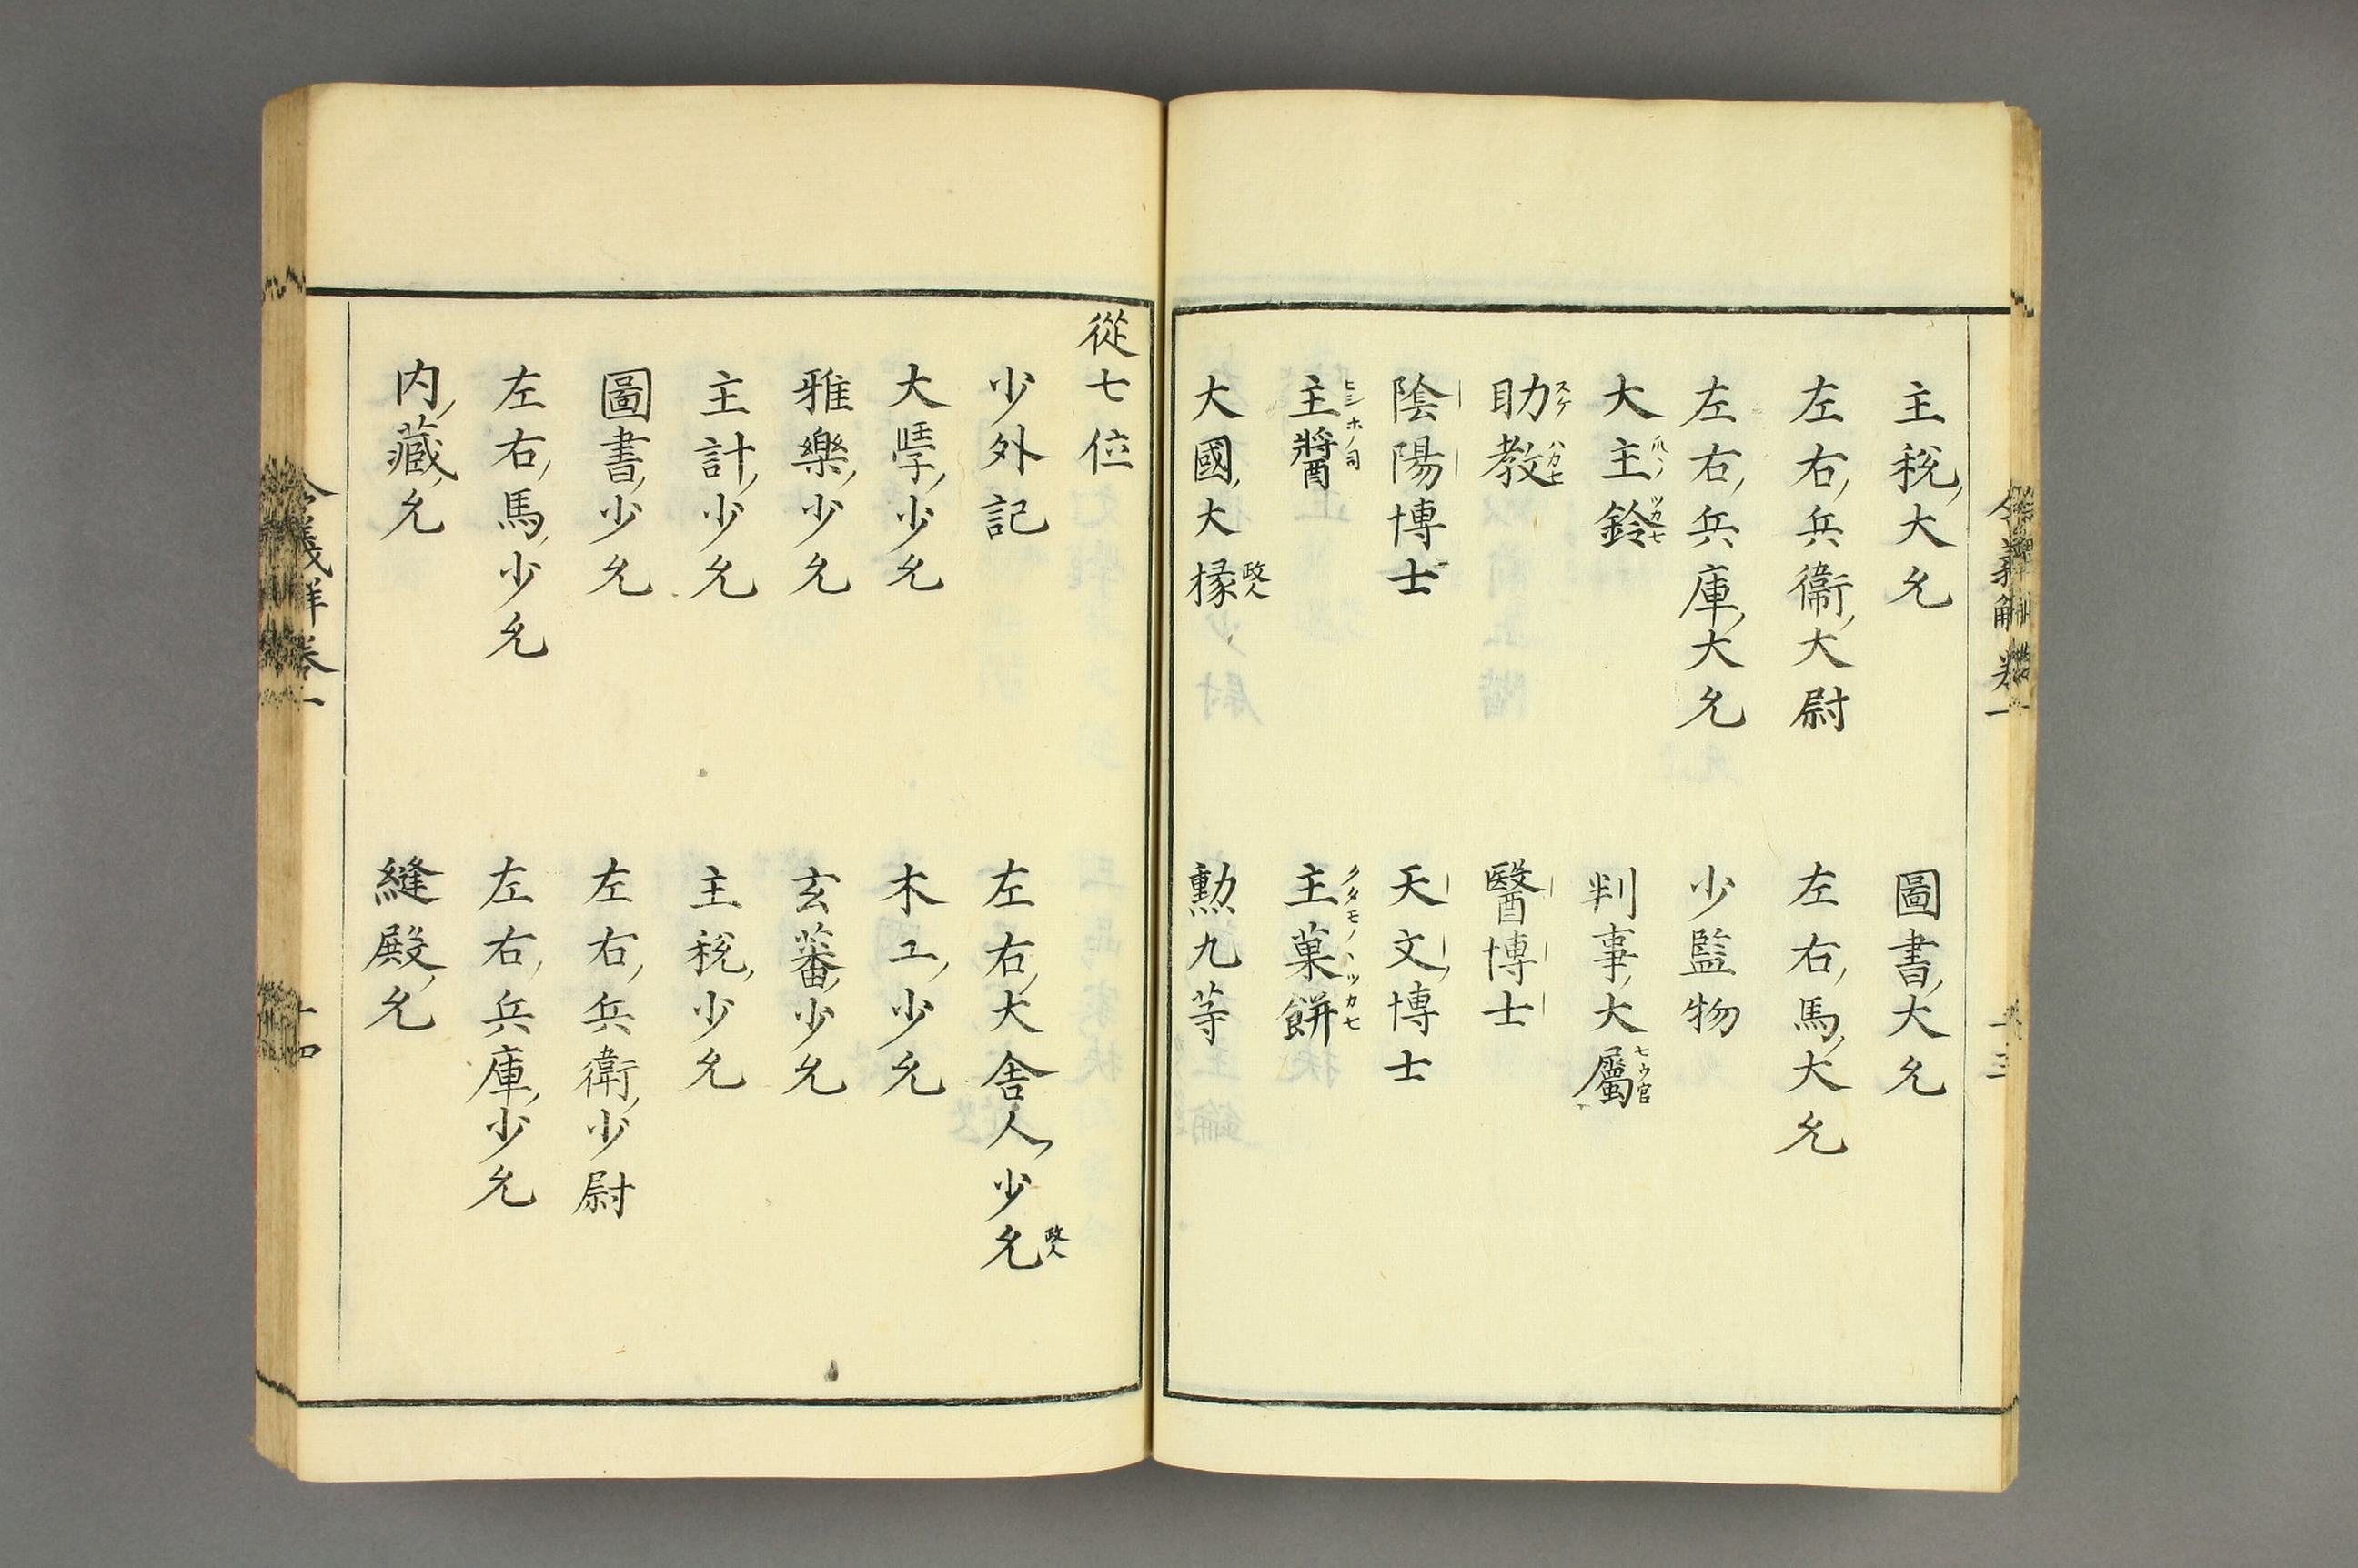 主税大允　圖書大允
左右兵衞大尉　左右馬大允
左右兵庫大允　少監物
大主鈴　判事大屬
助教　醫博士
陰陽博士　天文博士
主醬　主菓餅
大國大掾　勲九等
從七位
少外記　左右大舎人少允
大學少允　木工少允
雅樂少允　玄蕃少允
主計少允　主税少允
圖書少允　左右兵衛少尉
左右馬少允　左右兵庫少允
内藏允　縫殿允